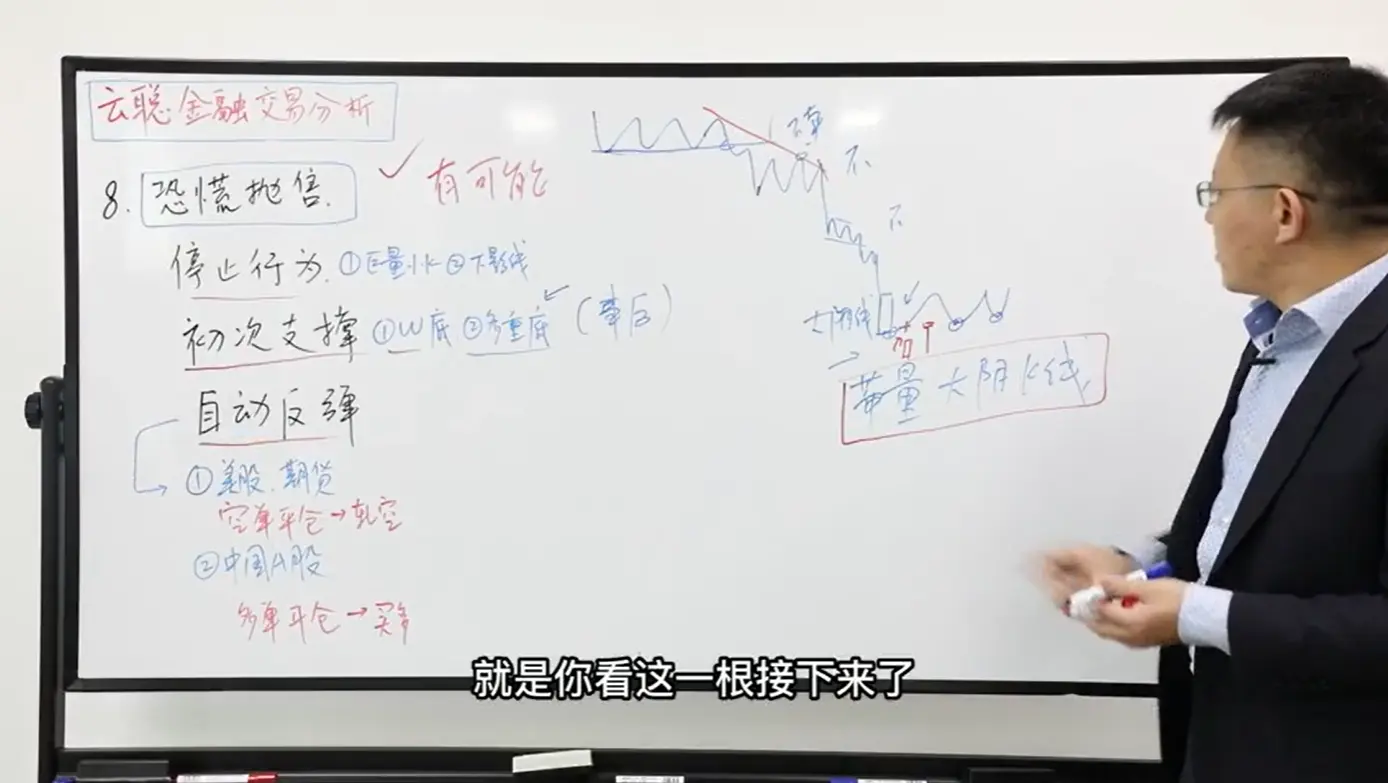 云聪金融交易分析
8. 恐慌抛售. ✓ 有可能
停止行为. ①巨量小K ②下影线
初次支撑 ①W底 ②多重底 (幸存)
自动反弹
①美股.期货
空单平仓→轧空
②中国A股
多单平仓→买多
不
不
大阴线
蓄量大阴K线
就是你看这一根接下来了